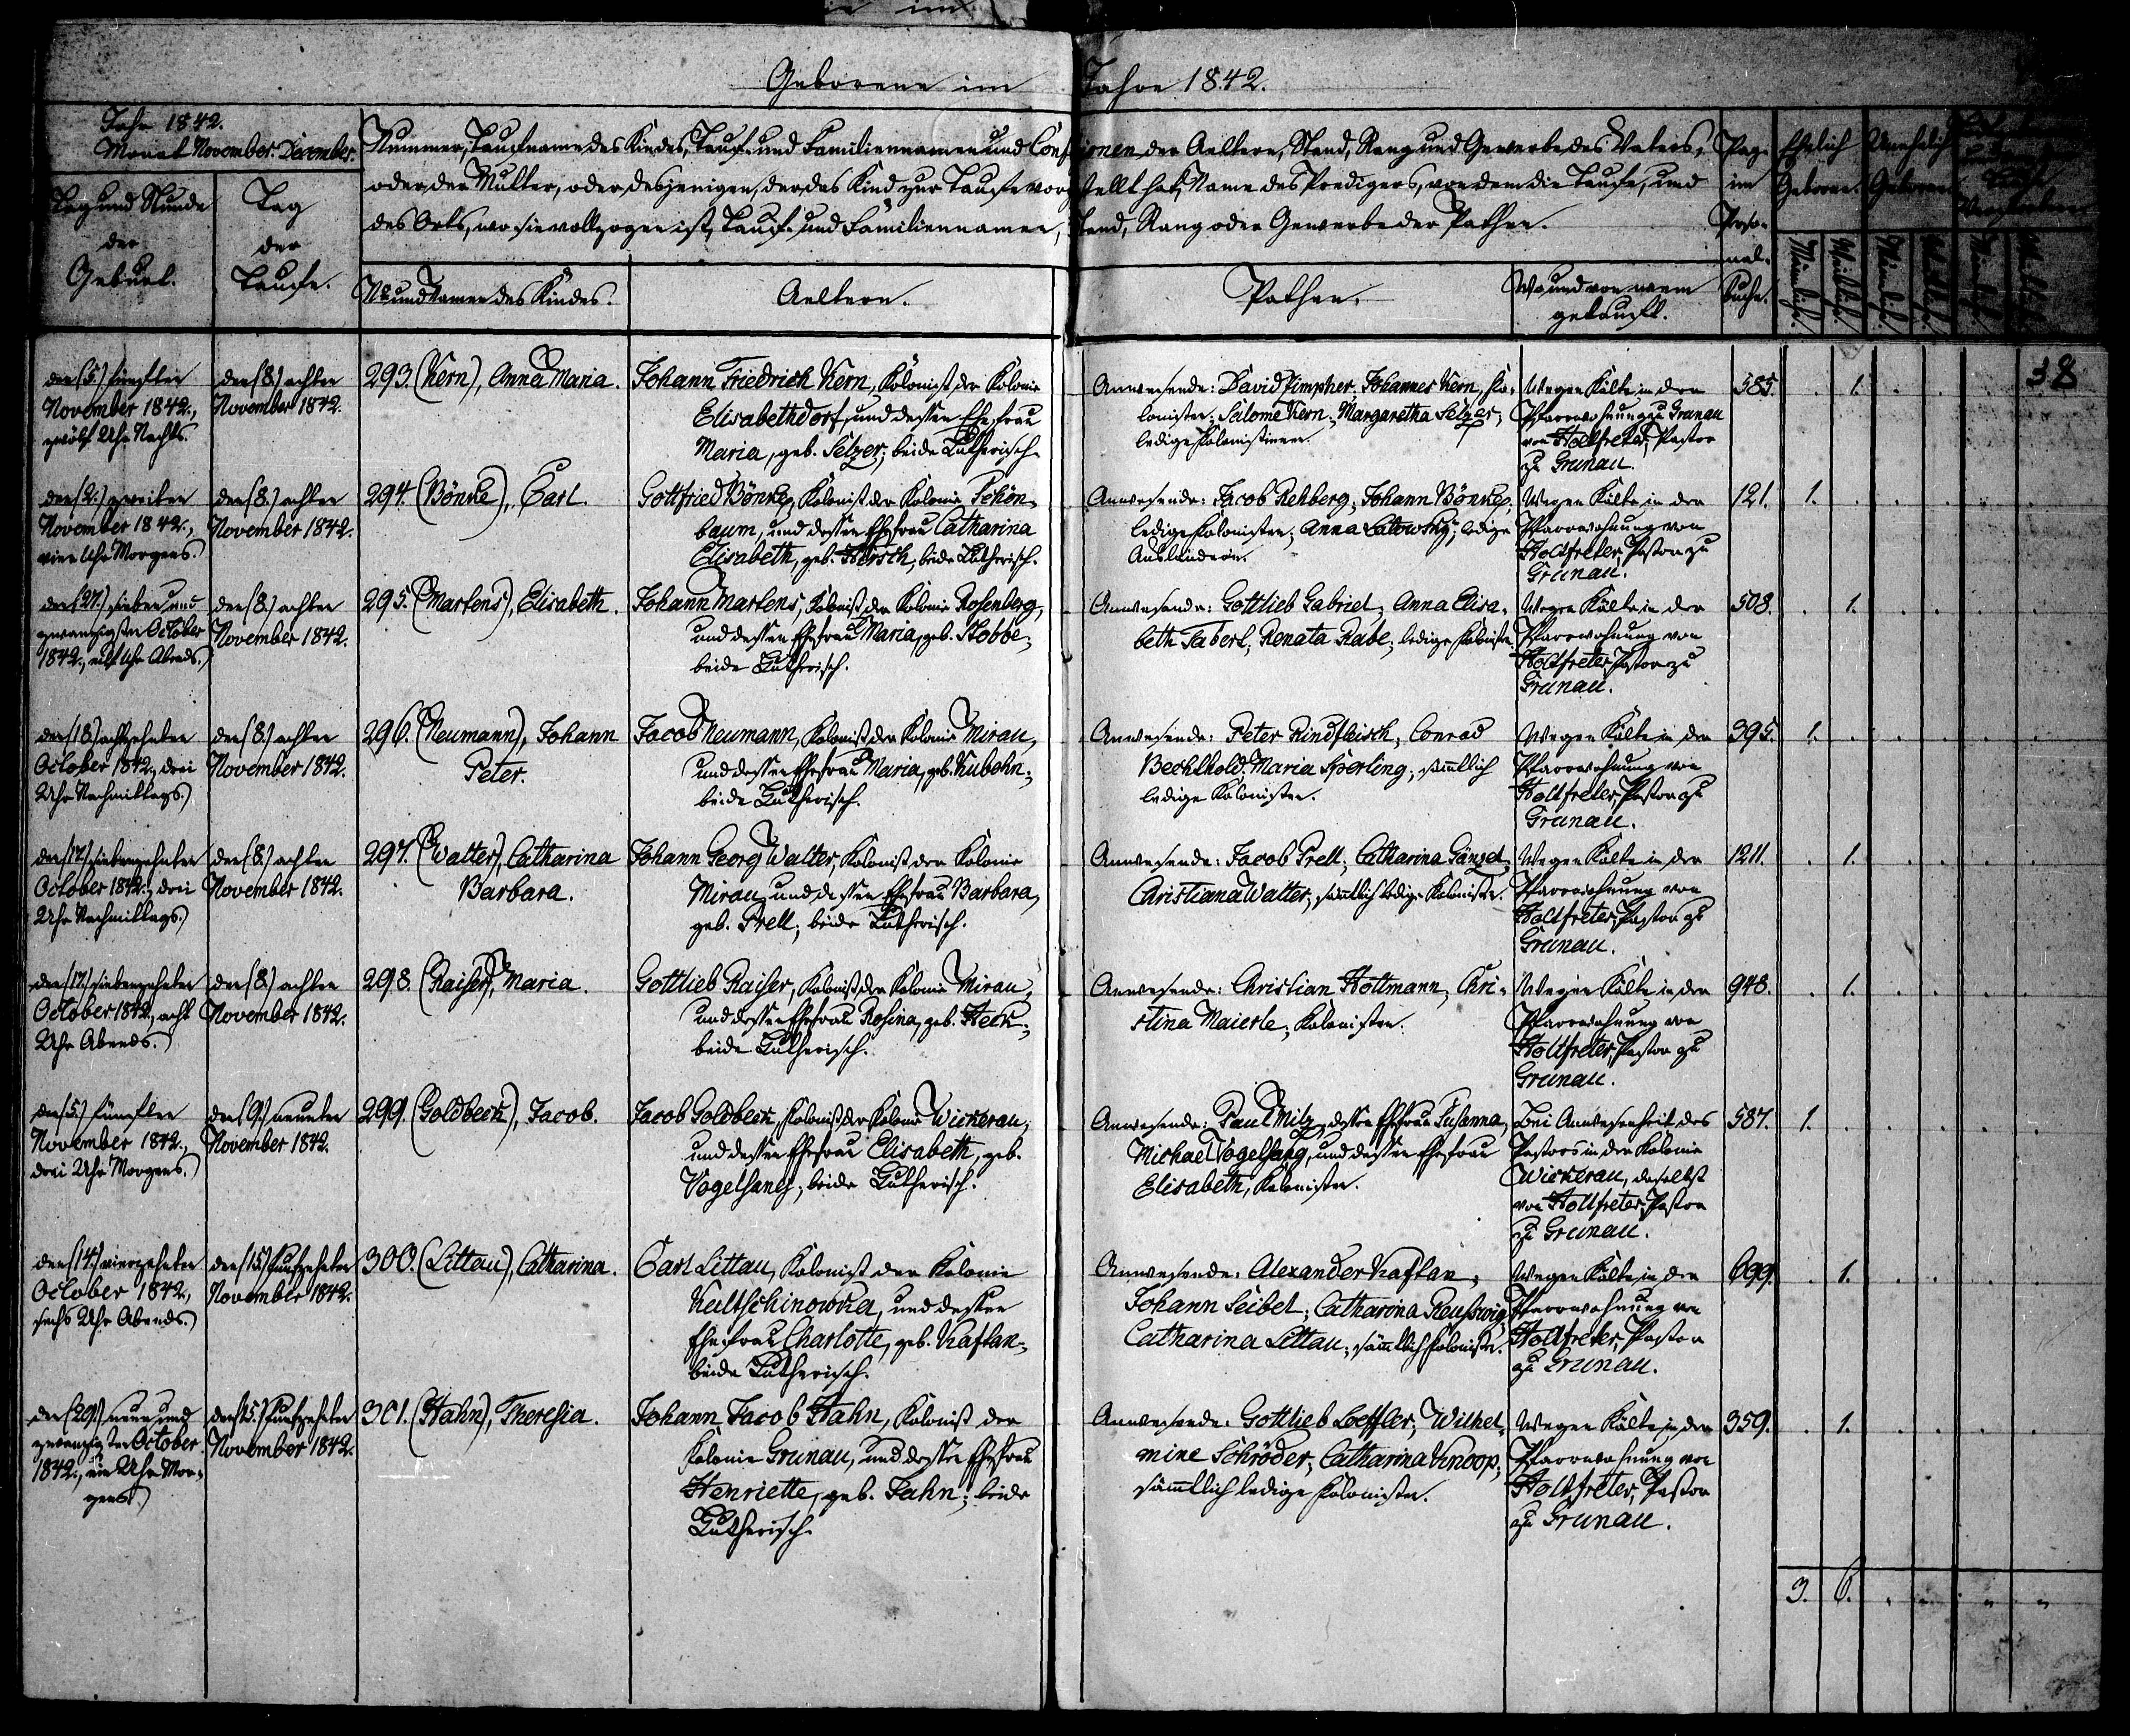 Geborene im Jahre 1842.
Jahr 1842.
Monat November. December.
Tag und Stunde
der
Geburt.
Tag
der
Taufe.
Nummer, Taufname des Kindes, Tauf- und Familiennamen und Confessionen der Aeltern, Stand, Rang und Gewerbe des Vaters,
oder der Mutter, oder desjenigen, der das Kind zur Taufe vorgestellt hat, Name des Predigers, von dem die Taufe, und
des Orts, wo sie vollzogen ist, Tauf- und Familiennamen, Stand, Rang oder Gewerbe der Pathen.
No und Namen des Kindes.
Aeltern.
Pathen.
Wo und von wem
getauft.
Pag.
im
Perso-
nal-
Buche.
Ehelich
Geborene.
Unehelich
Geborene
Männlich.
Weiblich.
Männlich.
Weiblich.
38
den (5.) fünften
November 1842.,
zwölf Uhr Nachts.
den (8.) achten
November 1842.
293. (Kern), Anna Maria.
Johann Friedrich Kern, Kolonist der Kolonie
Elisabethdorf, und dessen Ehefrau
Maria, geb. Selzer; beide Lutherisch.
Anwesende: David Timpher, Johannes Kern, Ko-
lonisten; Salome Kern, Margaretha Selzer,
ledige Kolonistinnen.
Wegen Kälte in der
Pfarrwohnung zu Grunau
von Holtfreter, Pastor
zu Grunau.
585.
1.
den (2.) zweiten
November 1842.,
vier Uhr Morgens.
den (8.) achten
November 1842.
294. (Bönke), Carl.
Gottfried Bönke, Kolonist der Kolonie Schön-
baum, und dessen Ehefrau Catharina
Elisabeth, geb. Hirsch, beide Lutherisch.
Anwesende: Jacob Rehberg, Johann Bönke,
ledige Kolonisten; Anna Satowsky, ledige
Ausländerin.
Wegen Kälte in der
Pfarrwohnung von
Holtfreter, Pastor zu
Grunau.
121.
1.
den (27.) sieben und
zwanzigsten October
1842., eilf Uhr Abends.
den (8.) achten
November 1842.
295. (Martens), Elisabeth.
Johann Martens, Kolonist der Kolonie Rosenberg,
und dessen Ehefrau Maria, geb. Stobbe;
beide Lutherisch.
Anwesende: Gottlieb Gabriel, Anna Elisa-
beth Taberl, Renata Rabe, ledige Kolonisten.
Wegen Kälte in der
Pfarrwohnung von
Holtfreter, Pastor zu
Grunau.
508.
1.
den (18.) achtzehnten
October 1842., drei
Uhr Nachmittags.
den (8.) achten
November 1842.
296. (Neumann), Johann
Peter.
Jacob Neumann, Kolonist der Kolonie Mirau,
und dessen Ehefrau Maria, geb. Kubehn;
beide Lutherisch.
Anwesende: Peter Rindfleisch, Conrad
Bechthold, Maria Sperling, sämmtlich
ledige Kolonisten.
Wegen Kälte in der
Pfarrwohnung von
Holtfreter, Pastor zu
Grunau.
395.
1.
den (17.) siebenzehnten
October 1842., drei
Uhr Nachmittags.
den (8.) achten
November 1842.
297. (Walter), Catharina
Barbara.
Johann Georg Walter, Kolonist der Kolonie
Mirau, und dessen Ehefrau Barbara,
geb. Prell; beide Lutherisch.
Anwesende: Jacob Prell, Catharina Gänzel,
Christiana Walter, sämmtlich ledige Kolonisten.
Wegen Kälte in der
Pfarrwohnung von
Holtfreter, Pastor zu
Grunau.
1211.
1.
den (17.) siebenzehnten
October 1842., acht
Uhr Abends.
den (8.) achten
November 1842.
298. (Raiser), Maria.
Gottlieb Raiser, Kolonist der Kolonie Mirau,
und dessen Ehefrau Rosina, geb. Heck;
beide Lutherisch.
Anwesende: Christian Holtmann, Chri-
stina Maierle, Kolonisten.
Wegen Kälte in der
Pfarrwohnung von
Holtfreter, Pastor zu
Grunau.
948.
1.
den (5.) fünften
November 1842.,
drei Uhr Morgens.
den (9.) neunten
November 1842.
299. (Goldbeck), Jacob.
Jacob Goldbeck, Kolonist der Kolonie Wickerau,
und dessen Ehefrau Elisabeth, geb.
Vogelsang, beide Lutherisch.
Anwesende: Paul Milz, dessen Ehefrau Susanna,
Michael Vogelsang, und dessen Ehefrau
Elisabeth, Kolonisten.
Bei Anwesenheit des
Pastors in der Kolonie
Wickerau, daselbst
von Holtfreter, Pastor
zu Grunau.
587.
1.
den (14.) vierzehnten
October 1842,
sechs Uhr Abends.
den (15.) funfzehnten
November 1842.
300. (Littau), Catharina.
Carl Littau, Kolonist der Kolonie
Kaltschinowka, und dessen
Ehefrau Charlotte, geb. Kaftan;
beide Lutherisch.
Anwesende: Alexander Kaftan,
Johann Seibel, Catharina Reußwig,
Catharina Littau, sämmtlich Kolonisten.
Wegen Kälte in der
Pfarrwohnung von
Holtfreter, Pastor
zu Grunau.
699.
1.
den (29.) neun und
zwanzigsten October
1842., ein Uhr Mor-
gens.
den (15.) funfzehnten
November 1842.
301. (Hahn), Theresia.
Johann Jacob Hahn, Kolonist der
Kolonie Grunau, und dessen Ehefrau
Henriette, geb. Jahn; beide
Lutherisch.
Anwesende: Gottlieb Loeffler, Wilhel-
mine Schröder, Catharina Knoop,
sämmtlich ledige Kolonisten.
Wegen Kälte in der
Pfarrwohnung von
Holtfreter, Pastor
zu Grunau.
359.
1.
3. 6.